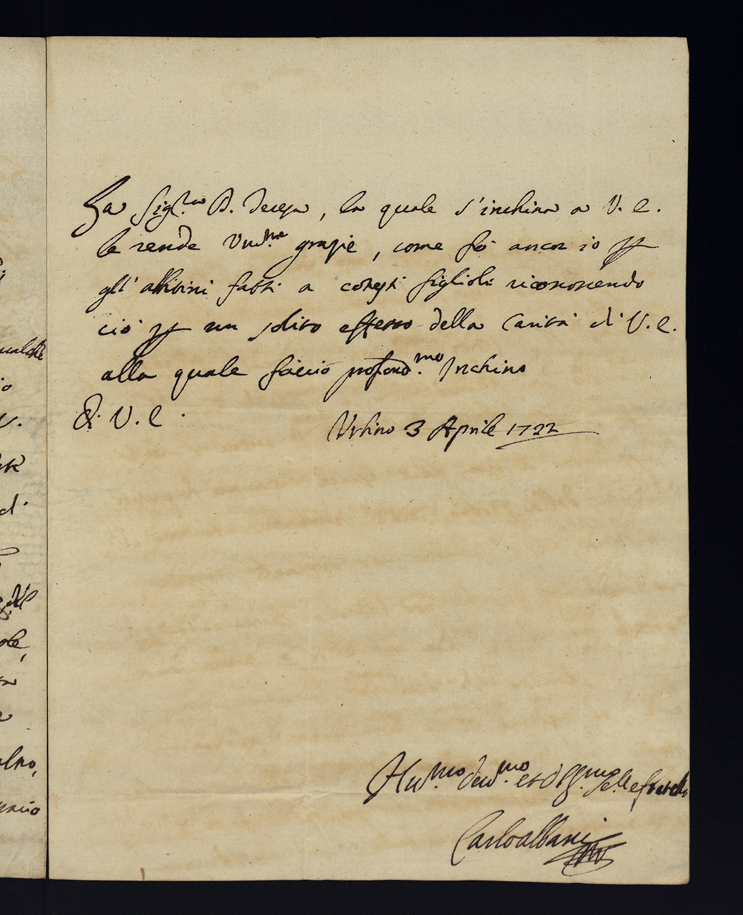 La Sig.ra D. Teresa, la quale s'inchina a V. E.
le rende Um.me grazie, come fò ancor io per
gl'abitini fatti a cotesti figlioli riconoscendo
ciò per un solito effetto della Carità di V. E.
alla quale faccio profond.mo Inchino
Di V. E.
Urbino 3 Aprile 1722
Hu.mo dev.mo et obbl.mo Se.re e fratello
Carlo Albani